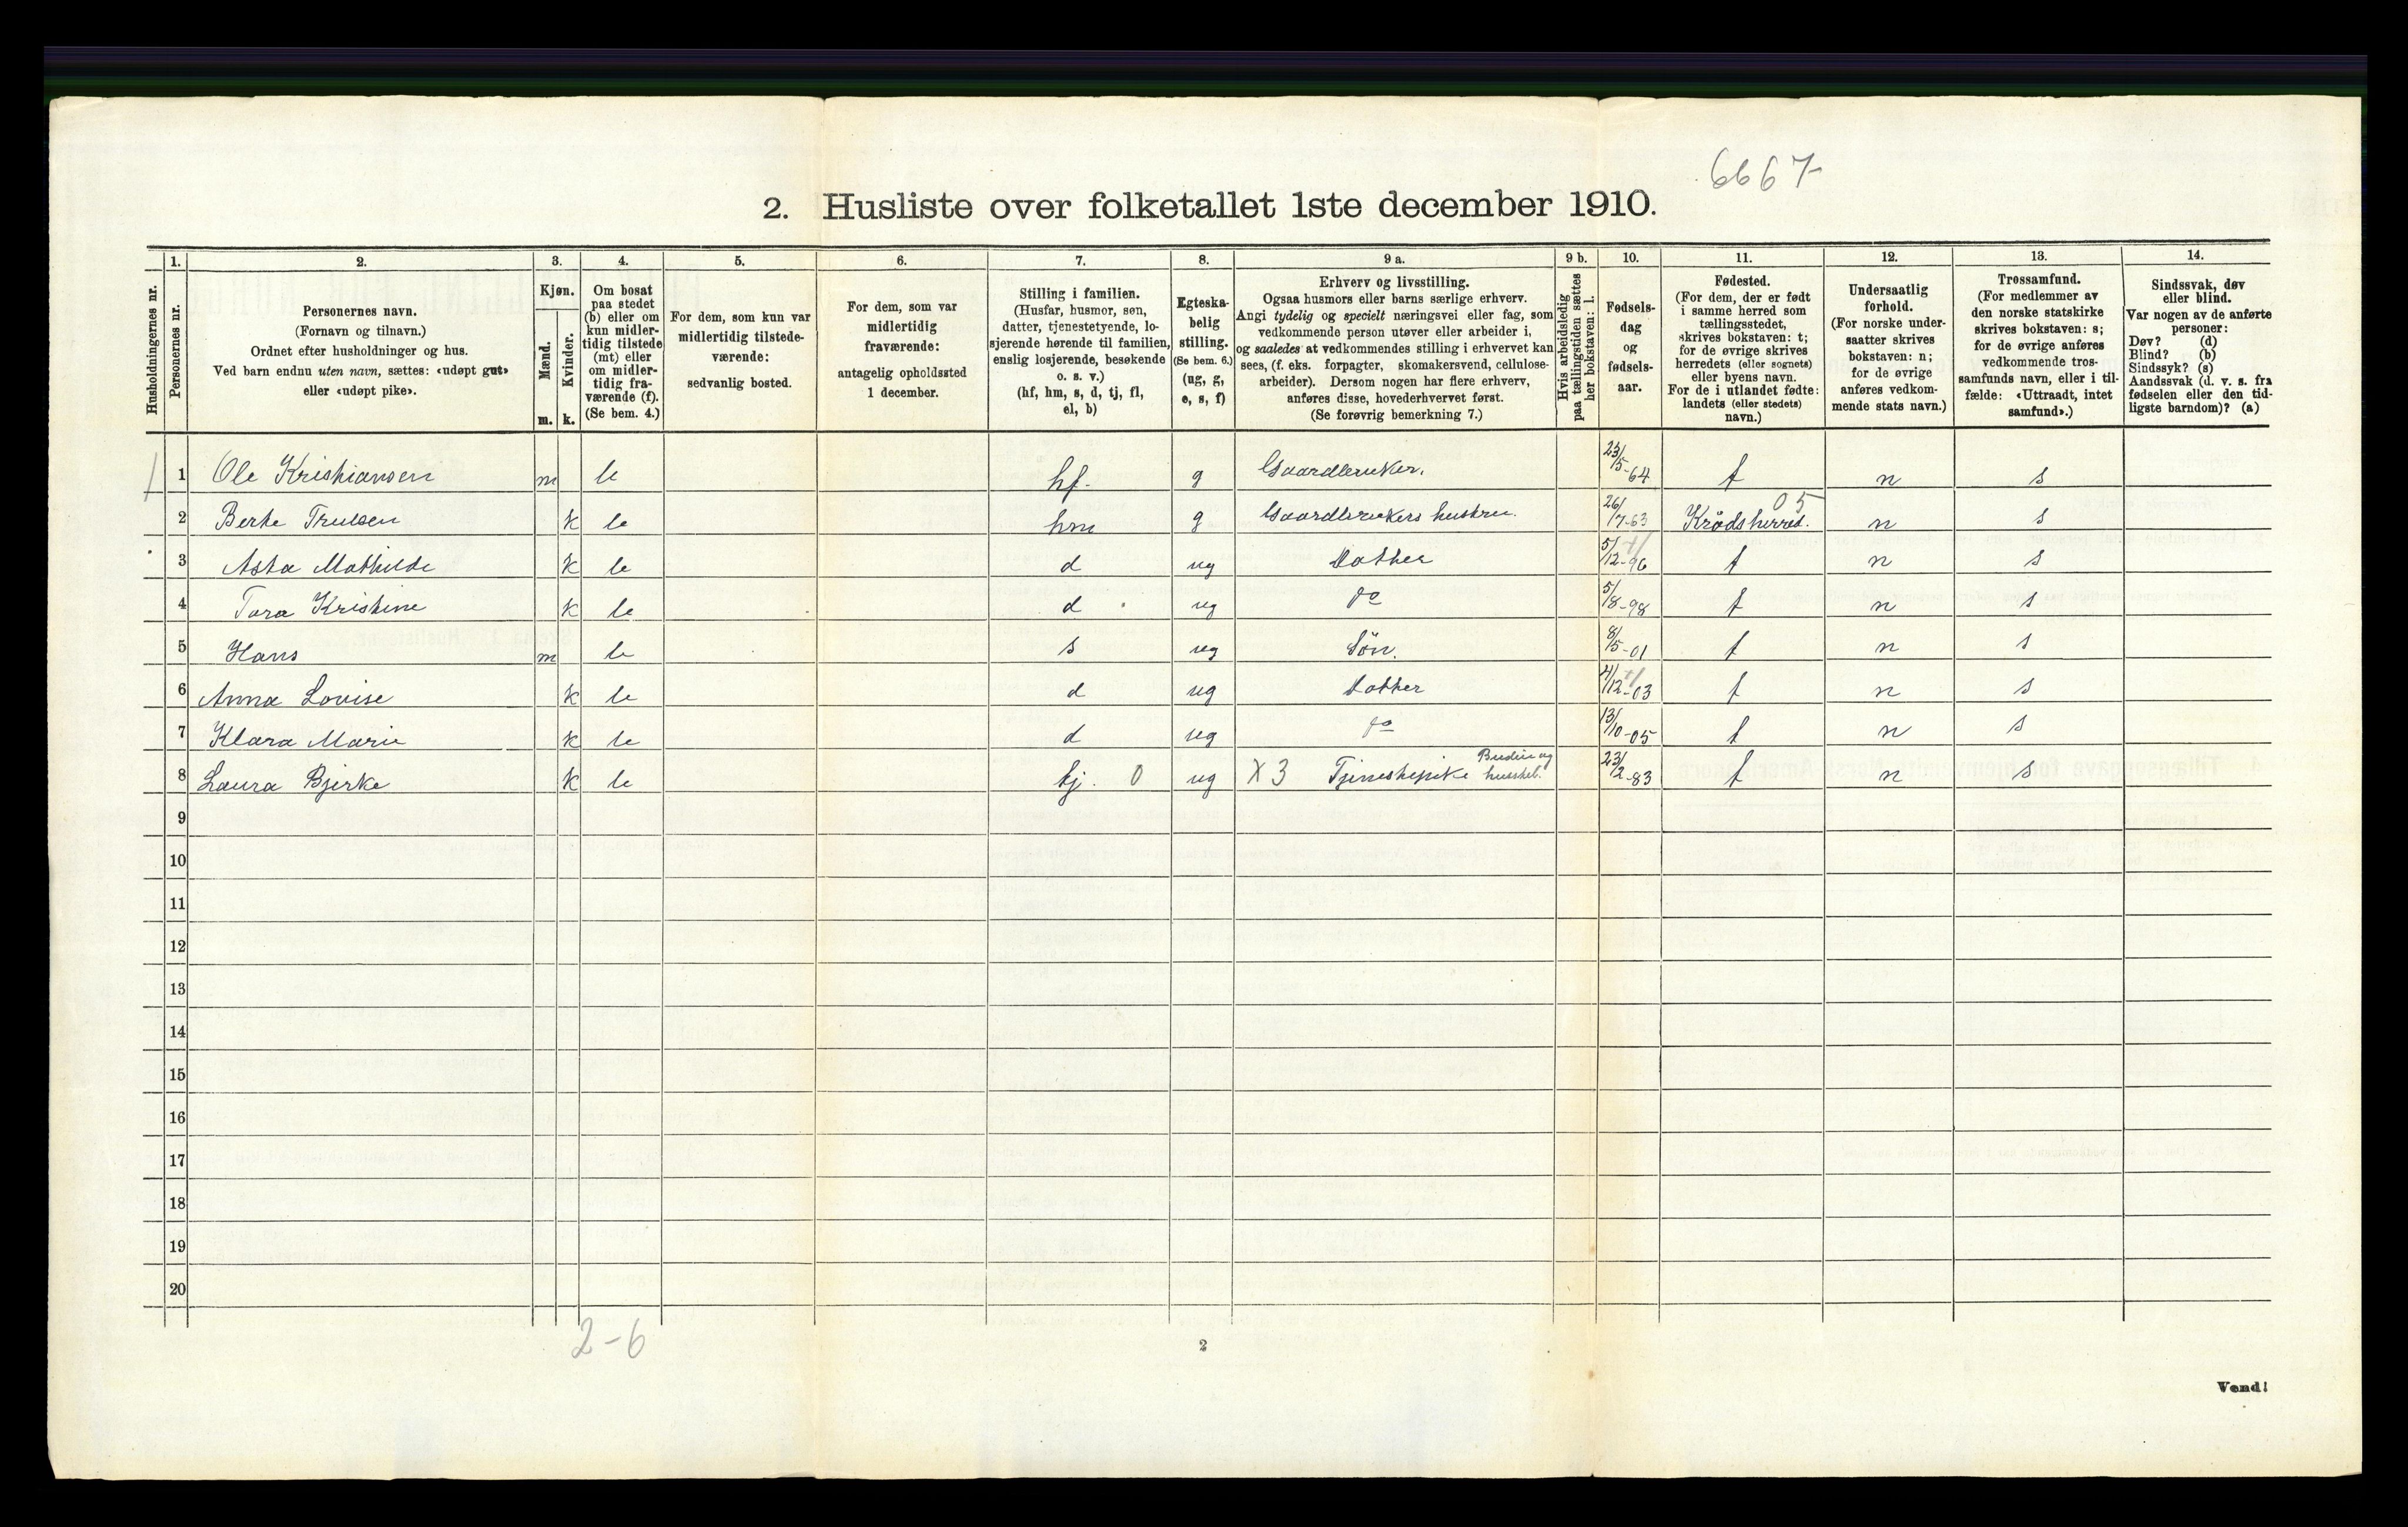 6667
2. Husliste over folketallet 1ste december 1910.
Husholdningernes nr.
1.
Personernes nr.
2.
Personernes navn.
(Fornavn og tilnavn.)
Ordnet efter husholdninger og hus.
Ved barn endnu uten navn, sættes: «udøpt gut»
eller «udøpt pike».
3.
Kjøn.
Mænd.
Kvinder.
m. k.
4.
Om bosat
paa stedet
(b) eller om
kun midler-
tidig tilstede
(mt) eller
om midler-
tidig fra-
værende (f).
(Se bem. 4.)
5.
For dem, som kun var
midlertidig tilstede-
værende:
sedvanlig bosted.
6.
For dem, som var
midlertidig
fraværende:
antagelig opholdssted
1 december.
7.
Stilling i familien.
(Husfar, husmor, søn,
datter, tjenestetyende, lo-
sjerende hørende til familien,
enslig losjerende, besøkende
o. s. v.)
(hf, hm, s, d, tj, fl,
el, b)
8.
Egteska-
belig
stilling.
(Se bem. 6.)
(ug, g,
e, s, f)
9 a.
Erhverv og livsstilling.
Ogsaa husmors eller barns særlige erhverv.
Angi tydelig og specielt næringsvei eller fag, som
vedkommende person utøver eller arbeider i,
og saaledes at vedkommendes stilling i erhvervet kan
sees, (f. eks. forpagter, skomakersvend, cellulose-
arbeider). Dersom nogen har flere erhverv,
anføres disse, hovederhvervet først.
(Se forøvrig bemerkning 7.)
9 b.
Hvis arbeidsledig
paa tællingstiden sættes
her bokstaven: l.
10.
Fødsels-
dag
og
fødsels-
aar.
11.
Fødested.
(For dem, der er født
i samme herred som
tællingsstedet,
skrives bokstaven: t;
for de øvrige skrives
herredets (eller sognets)
eller byens navn.
For de i utlandet fødte:
landets (eller stedets)
navn.)
12.
Undersaatlig
forhold.
(For norske under-
saatter skrives
bokstaven: n;
for de øvrige
anføres vedkom-
mende stats navn.)
13.
Trossamfund.
(For medlemmer av
den norske statskirke
skrives bokstaven: s;
for de øvrige anføres
vedkommende tros-
samfunds navn, eller i til-
fælde: «Uttraadt, intet
samfund».)
14.
Sindssvak, døv
eller blind.
Var nogen av de anførte
personer:
Døv? (d)
Blind? (b)
Sindssyk? (s)
Aandssvak (d. v. s. fra
fødselen eller den tid-
ligste barndom)? (a)
1 Ole Kristiansen m b hf. g Gaardbruker. 23/5-64 t n s
2 Berte Trulsen k b hm g Gaardbrukers hustru. 26/7-63 Krödsherred. 05 n s
3 Asta Mathilde k b d ug Datter 5/12-96 t n s
4 Tora Kristine k b d ug do 5/8-98 t n s
5 Hans m b s ug Sön. 8/5-01 t n s
6 Anna Lovise k b d ug Datter 4/12-03 t n s
7 Klara Marie k b d ug do 13/10-05 t n s
8 Laura Bjerke k b tj. 0 ug X 3 Tjenestepike Budeie og husstel. 23/2-83 t n s
9
10
11
12
13
14
15
16
17
18
19
20
2-6
2
Vend!